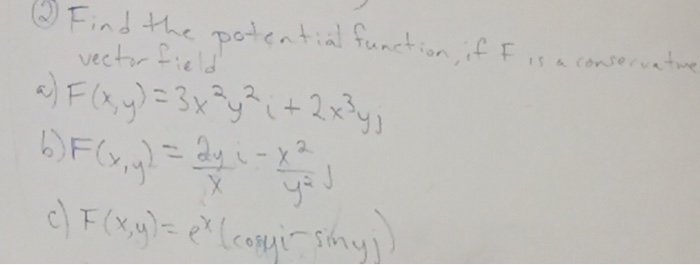 ② Find the potential function, if F is a conservative
vector field
a) F(x,y) = 3x²y² i + 2x³y j
b) F(x,y) = 2y/x i - x²/y² j
c) F(x,y) = eˣ (cosy i - siny j)